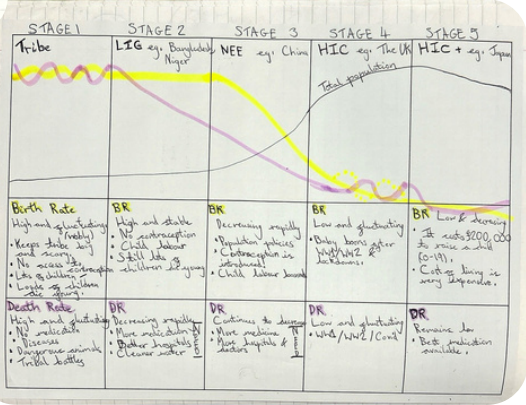 STAGE 1
STAGE 2
STAGE 3
STAGE 4
STAGE 5
Tribe
LIG eg. Bangladesh
Niger
NEE eg. China
HIC eg. The UK
HIC + eg. Japan
Total population
Birth Rate
High and fluctuating
Keeps tribe big
and scary.
No access to
contraception
Lots of children
Loads of children
die young.
BR
High and stable
No contraception
Child labour
Still lots of
children die young
BR
Decreasing rapidly
Population policies
Contraception is
introduced
Child labour banned
BR
Low and fluctuating
Baby booms after
WW1/WW2 &
lockdowns.
BR Low & decreasing
It costs £200,000
to raise a child
(0-19).
Cost of living is
very expensive.
Death Rate
High and fluctuating
No medication
Diseases
Dangerous animals
Tribal battles
DR
Decreasing rapidly
More medication
Better hospitals
Cleaner water
DR
Continues to decrease
More medicine
More hospitals &
doctors
DR
Low and fluctuating
WW1/WW2/Covid
DR
Remains low
Best medication
available.